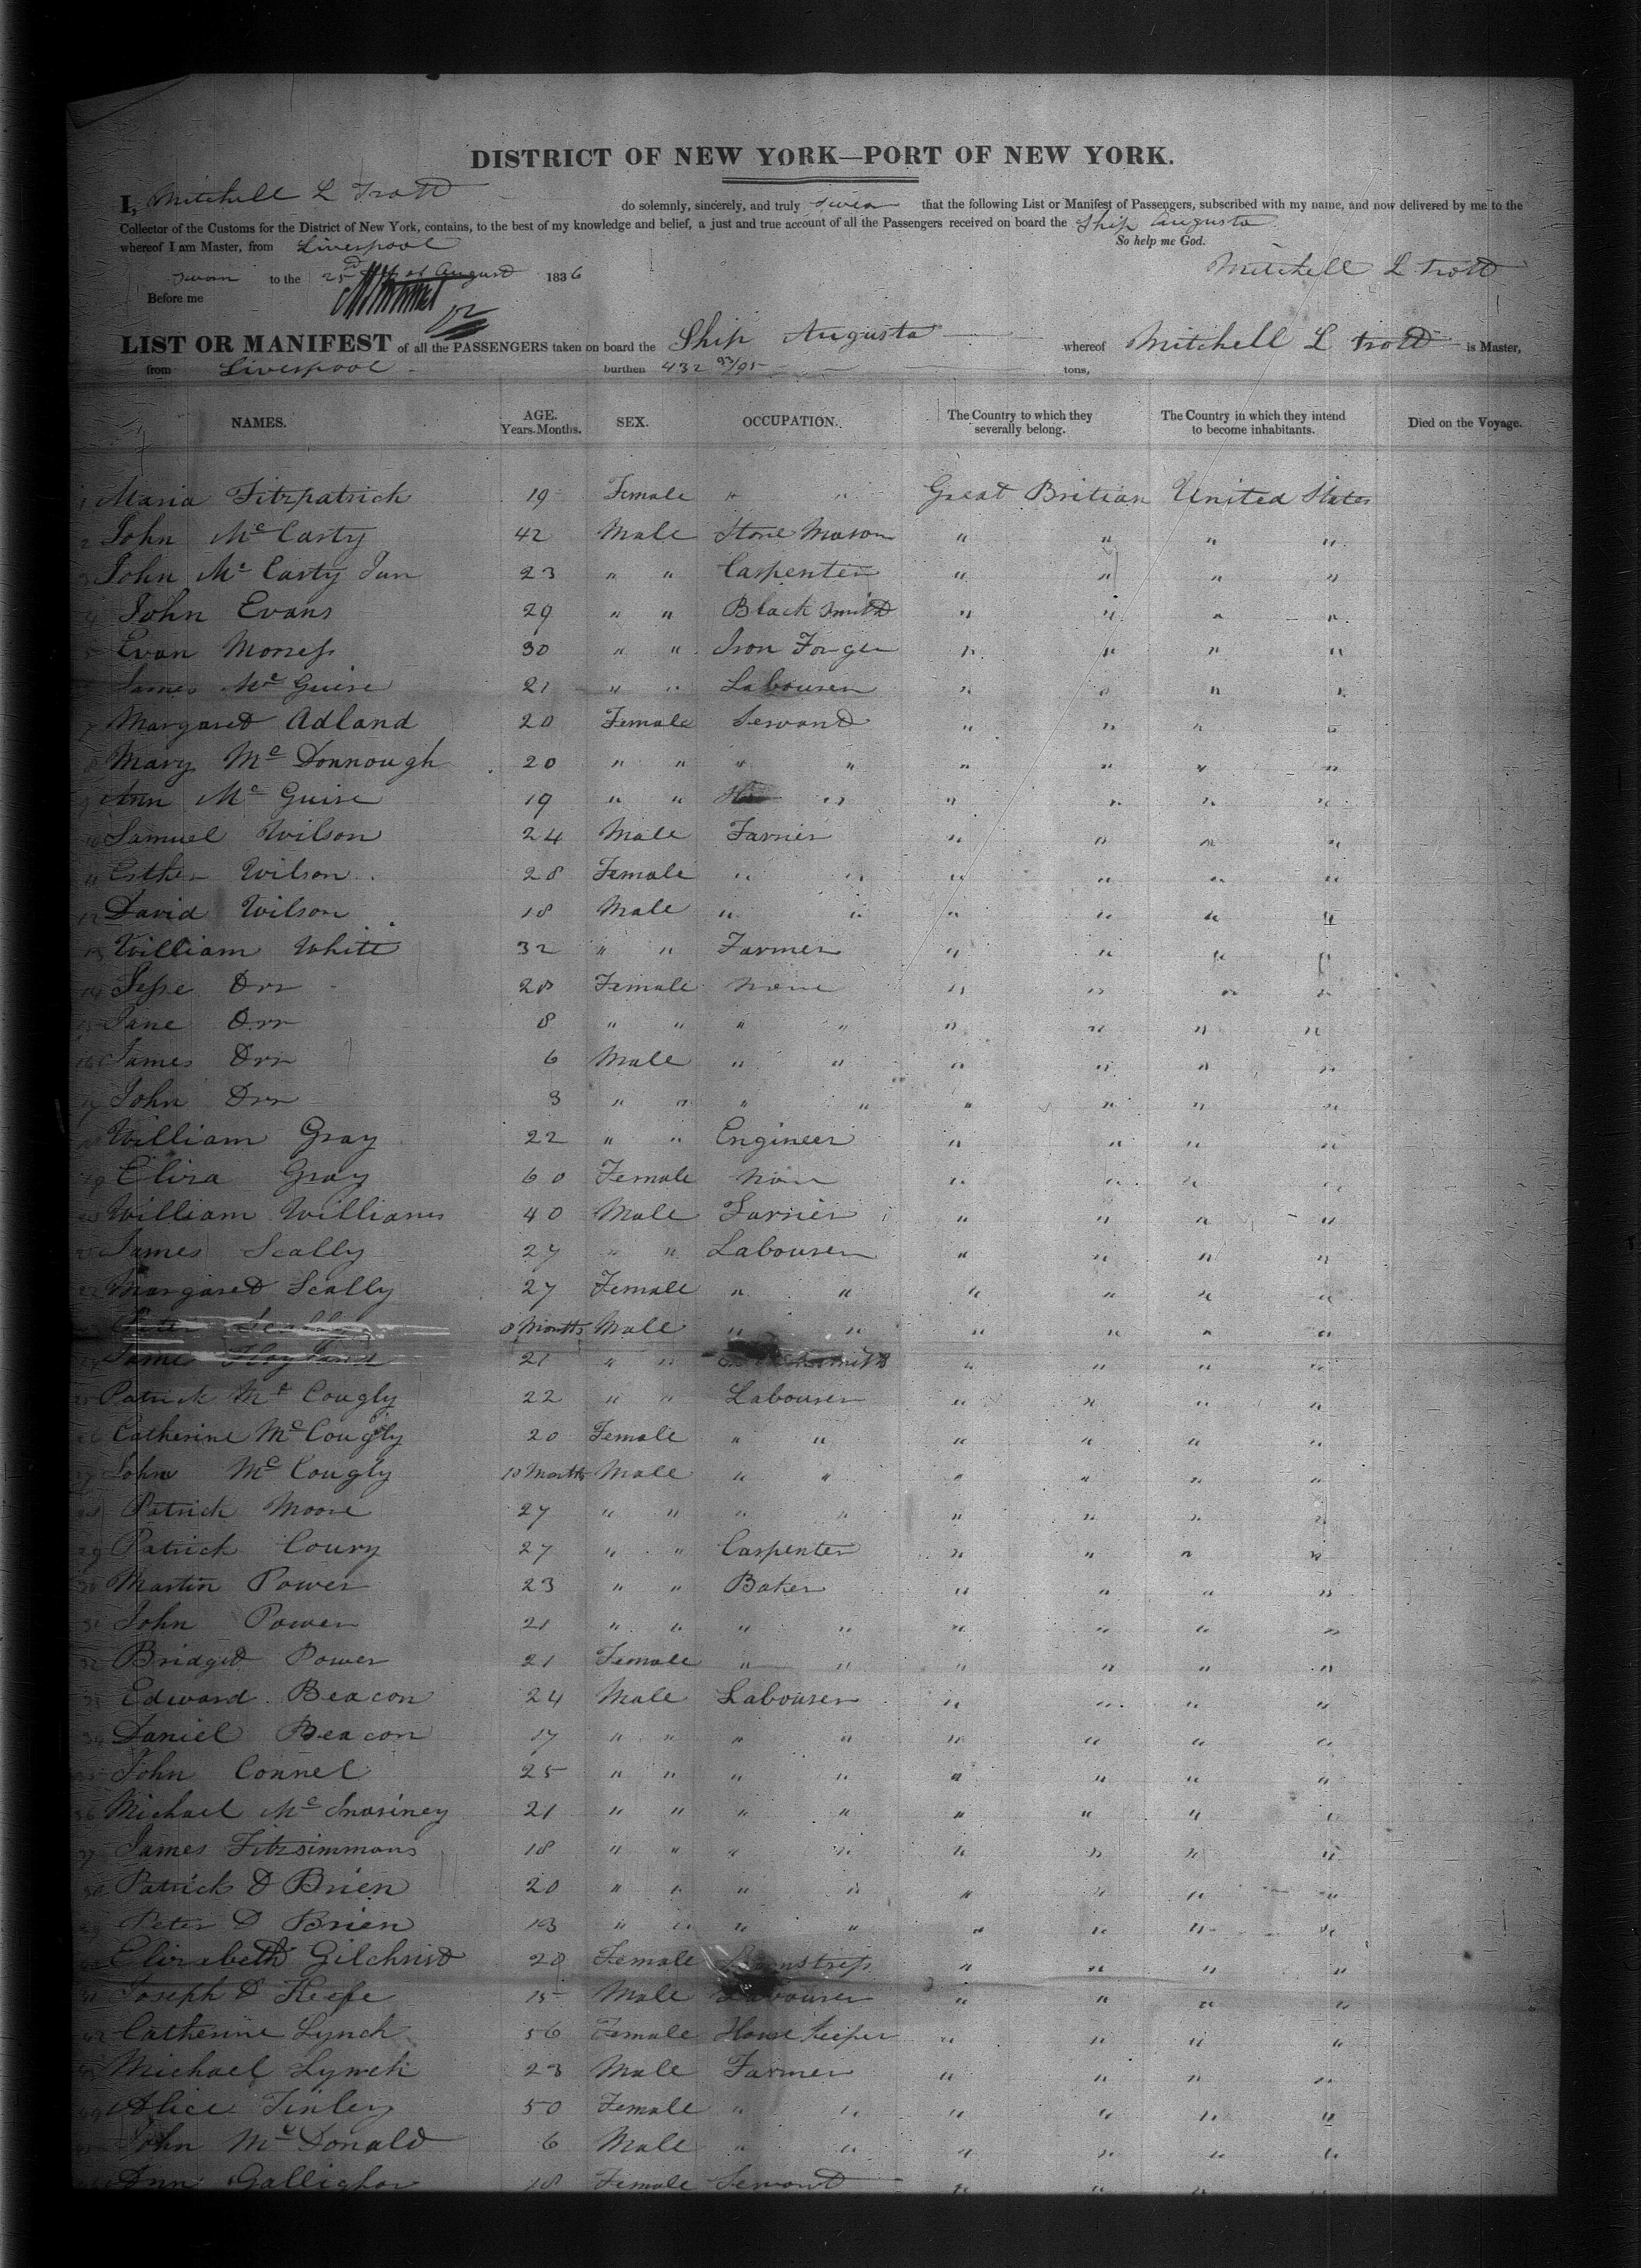 DISTRICT OF NEW YORK—PORT OF NEW YORK.
I, Mitchell L Trott do solemnly, sincerely, and truly swear that the following List or Manifest of Passengers, subscribed with my name, and now delivered by me to the
Collector of the Customs for the District of New York, contains, to the best of my knowledge and belief, a just and true account of all the Passengers received on board the Ship Augusta
whereof I am Master, from Liverpool So help me God.
Sworn to the 25 of August 1836 Mitchell L Trott
Before me
LIST OR MANIFEST of all the PASSENGERS taken on board the Ship Augusta whereof Mitchell L Trott is Master,
from Liverpool burthen 432 93/95 tons,
NAMES. AGE. Years. Months. SEX. OCCUPATION. The Country to which they severally belong. The Country in which they intend to become inhabitants. Died on the Voyage.
1 Maria Fitzpatrick 19 Female " " Great Britian United States
2 John Mc Carty 42 Male Stone Mason " " " "
3 John Mc Carty Jun 23 " " Carpenter " " " "
4 John Evans 29 " " Black Smith " " " "
5 Evan 30 " " Iron Forger " " " "
James Mc Guire 21 " " Labourer " " " "
7 Margaret Adland 20 Female Servant " " " "
8 Mary Mc Donnough 20 " " " " " " " "
9 Ann Mc Guire 19 " " " " " " "
10 Samuel Wilson 24 Male Farrier " " " "
11 Esther Wilson 28 Female " " " " " "
12 David Wilson 18 Male " " " " " "
13 William White 32 " " Farmer " " " "
14 Jesse Orr 28 Female None " " " "
15 Jane Orr 8 " " " " " " " "
16 James Orr 6 Male " " " " " "
17 John Orr 3 " " " " " " " "
18 William Gray 22 " " Engineer " " " "
19 Eliza Gray 60 Female None " " " "
20 William Williams 40 Male Farrier " " " "
21 James Scally 27 " " Labourer " " " "
22 Margaret Scally 27 Female " " " " " "
Peter Scally 8 Months Male " " " " " "
24 James 21 " " " " " "
25 Patrick Mc Cougly 22 " " Labourer " " " "
26 Catherine Mc Cougly 20 Female " " " " " "
27 John Mc Cougly 10 Months Male " " " " " "
28 Patrick Moore 27 " " " " " " " "
29 Patrick Coury 27 " " Carpenter " " " "
30 Martin Power 23 " " Baker " " " "
31 John Power 21 " " " " " " " "
32 Bridget Power 21 Female " " " " " "
33 Edward Beacon 24 Male Labourer " " " "
34 Daniel Beacon 17 " " " " " " " "
35 John Connel 25 " " " " " " " "
36 Michael Mc 21 " " " " " " " "
37 James Fitzsimmons 18 " " " " " " " "
38 Patrick O Brien 20 " " " " " " " "
39 Peter O Brien 13 " " " " " " " "
40 Elizabeth Gilchrist 20 Female " " " "
41 Joseph O Keefe 15 Male Labourer " " " "
42 Catherine Lynch 56 Female House Keeper " " " "
43 Michael Lynch 23 Male Farmer " " " "
44 Alice Finley 50 Female " " " " " "
45 John Mc Donald 6 Male " " " " " "
Ann Galligher 18 Female Servant " " " "